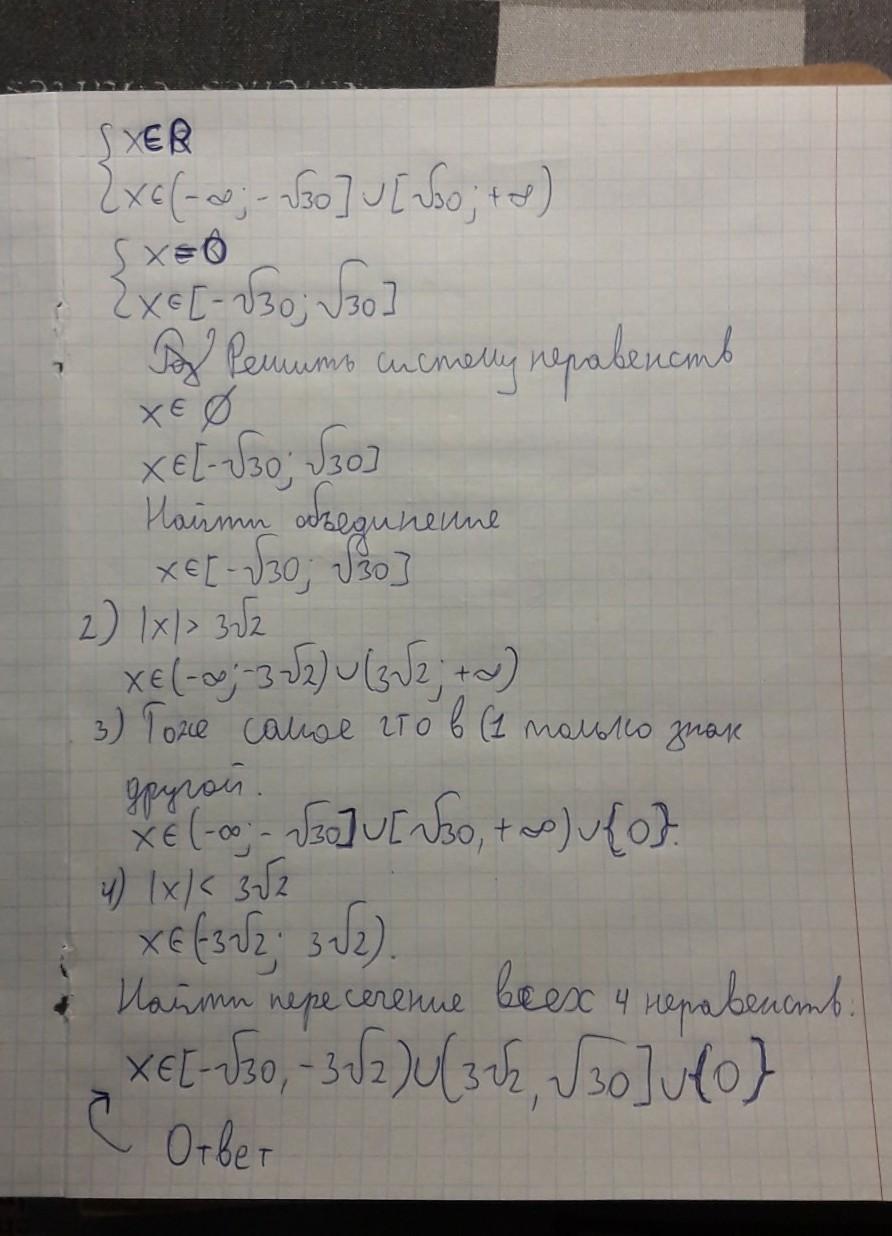 { x∈R
{ x∈(-∞; -√30] ∪ [√30; +∞)
{ x=0
{ x∈[-√30; √30]
Решить систему неравенств
x∈ ∅
x∈[-√30; √30]
Найти объединение
x∈[-√30; √30]
2) |x| > 3√2
x∈(-∞; -3√2) ∪ (3√2; +∞)
3) Тоже самое что в (1 только знак
другой.
x∈(-∞; -√30] ∪ [√30, +∞) ∪ {0}.
4) |x| < 3√2
x∈(-3√2; 3√2).
Найти пересечение всех 4 неравенств:
x∈[-√30, -3√2) ∪ (3√2, √30] ∪ {0}
Ответ